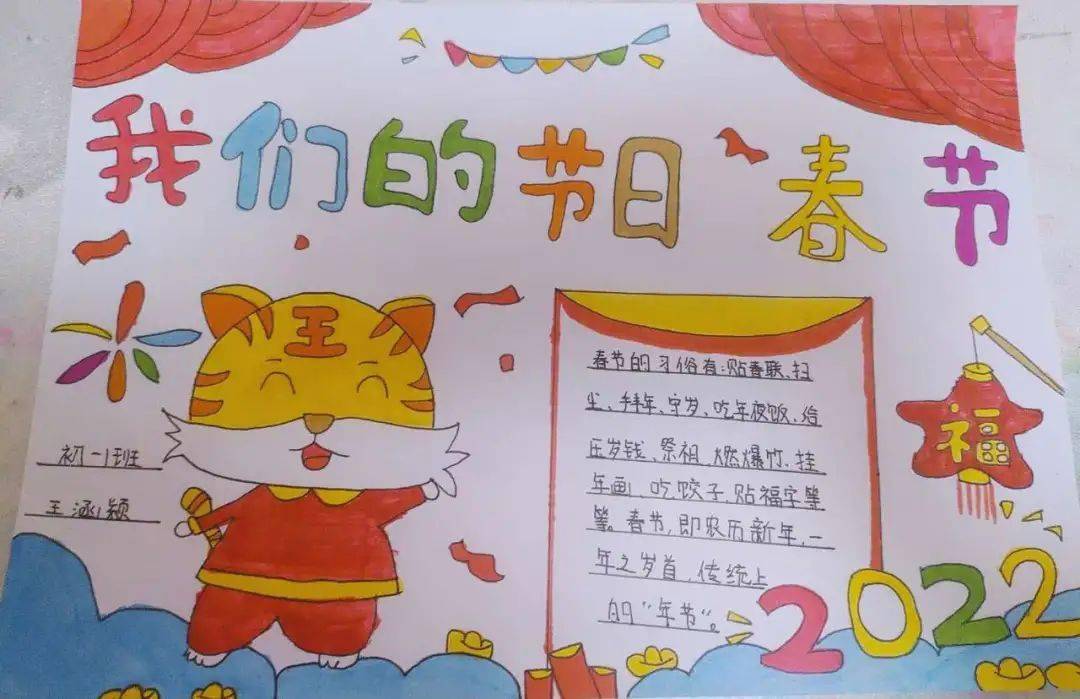 我们的节日 春节
王
初一1班
王涵颖
春节的习俗有:贴春联、扫
尘、拜年、守岁、吃年夜饭、给
压岁钱、祭祖、燃爆竹、挂
年画、吃饺子、贴福字等
等。春节,即农历新年,一
年之岁首,传统上
的“年节”。
福
2022